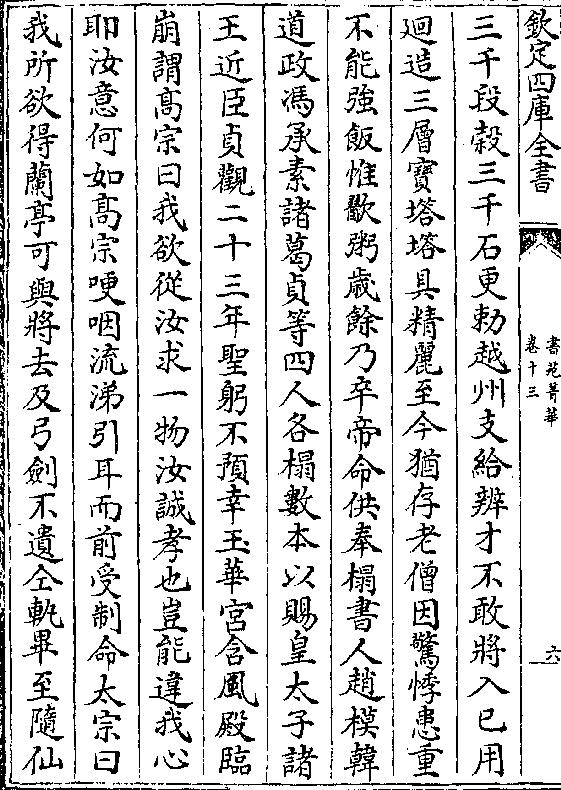 欽定四庫全書
書苑菁華
卷十三
六
三千段糓三千石更勅越州支給辨才不敢將入已用
廻造三層寳塔塔具精麗至今猶存老僧因驚悸患重
不能強飯惟歠粥歲餘乃卒帝命供奉榻書人趙模韓
道政馮承素諸葛貞等四人各榻數本以賜皇太子諸
王近臣貞觀二十三年聖躬不預幸玉華宮含風殿臨
崩謂髙宗曰我欲從汝求一物汝誠孝也豈能違我心
耶汝意何如髙宗哽咽流涕引耳而前受制命太宗曰
我所欲得蘭亭可與將去及弓劒不遺仝軌畢至隨仙